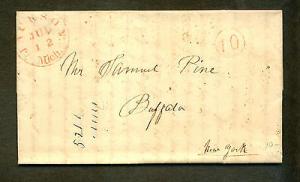 JUL
12
Mich.
10
Mr Samuel Pine
Buffalo
New York